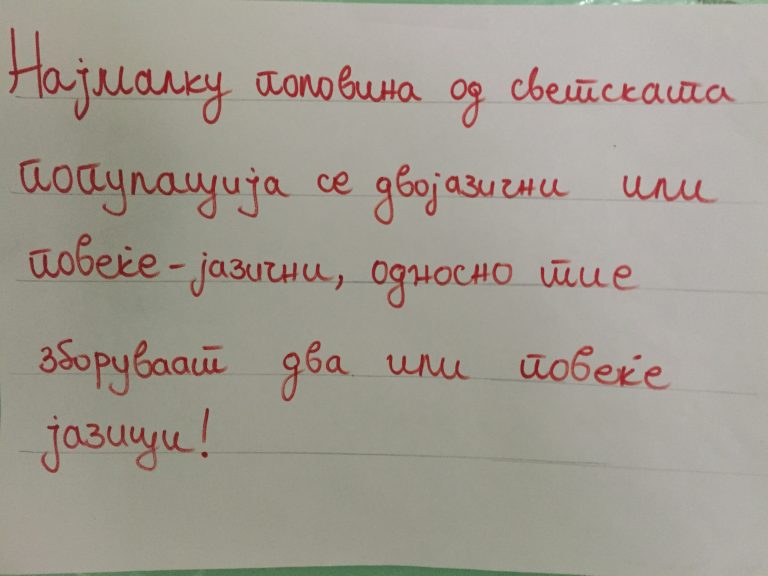 Најмалку половина од светската
популација се двојазични или
повеќе-јазични, односно тие
зборуваат два или повеќе
јазици!